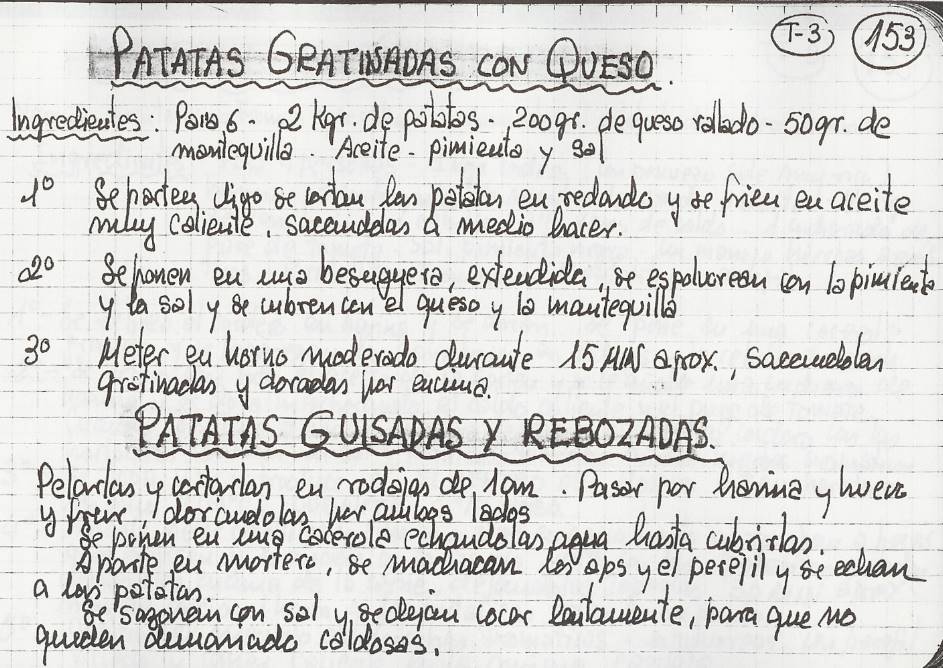 T-3 153
PATATAS GRATINADAS CON QUESO.
Ingredientes: Para 6 - 2 Kgr. de patatas - 200gr. de queso rallado - 50gr. de
mantequilla - Aceite - pimienta y sal
1º Se parten digo se cortan las patatas en redondo y se frien en aceite
muy caliente, sacandolas a medio hacer.
2º Se ponen en una besuguera, extendida, se espolvorean con la pimienta
y la sal y se cubren con el queso y la mantequilla
3º Meter en horno moderado durante 15 MIN aprox., sacandolas
gratinadas y doradas por encima.
PATATAS GUISADAS Y REBOZADAS.
Pelarlas y cortarlas en rodajas de 1cm. Pasar por harina y huevo
y freir, dorandolas por ambos lados
Se ponen en una cacerola echandolas agua hasta cubrirlas.
Aparte en mortero, se machacan los ajos y el perejil y se echan
a las patatas.
Se sazonan con sal y se dejan cocer lentamente, para que no
queden demasiado caldosas.